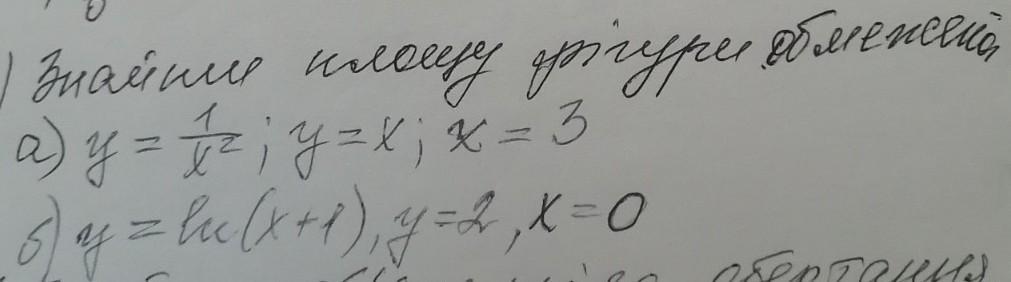 ) Знайти площу фігури обмеженой
а) y = 1/x²; y = x; x = 3
б) y = ln(x+1), y = 2, x = 0
обертання